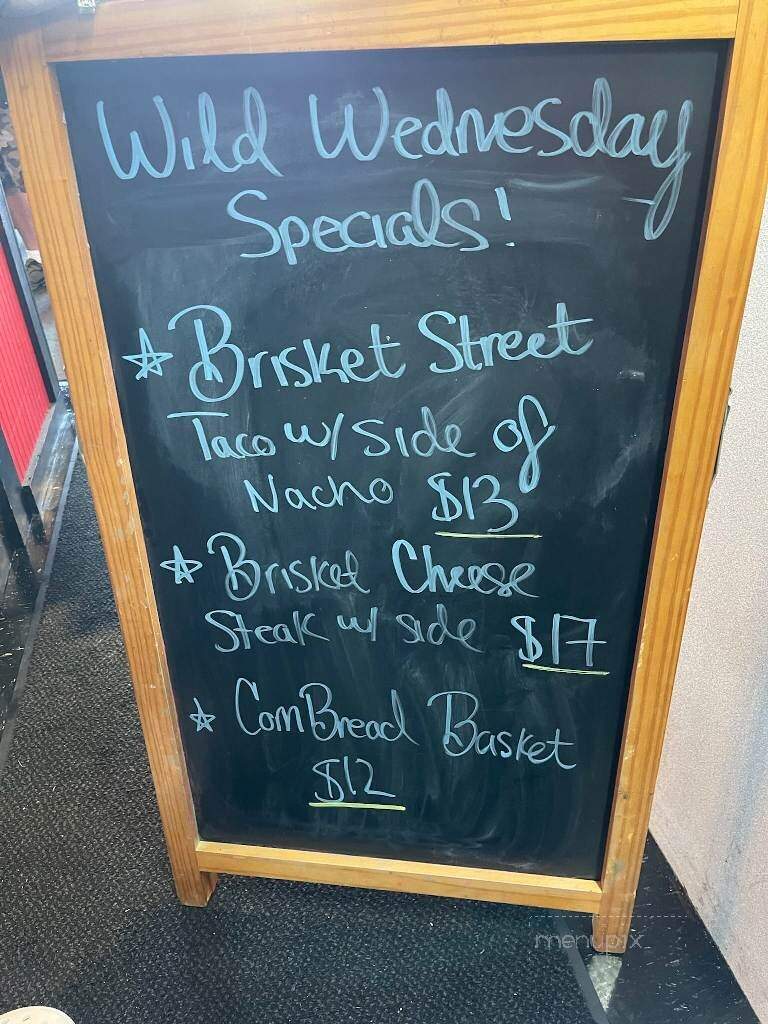 Wild Wednesday
Specials!
☆ Brisket Street
Taco w/ side of
Nacho $13
☆ Brisket Cheese
Steak w/ side $17
☆ CornBread Basket
$12
menupix